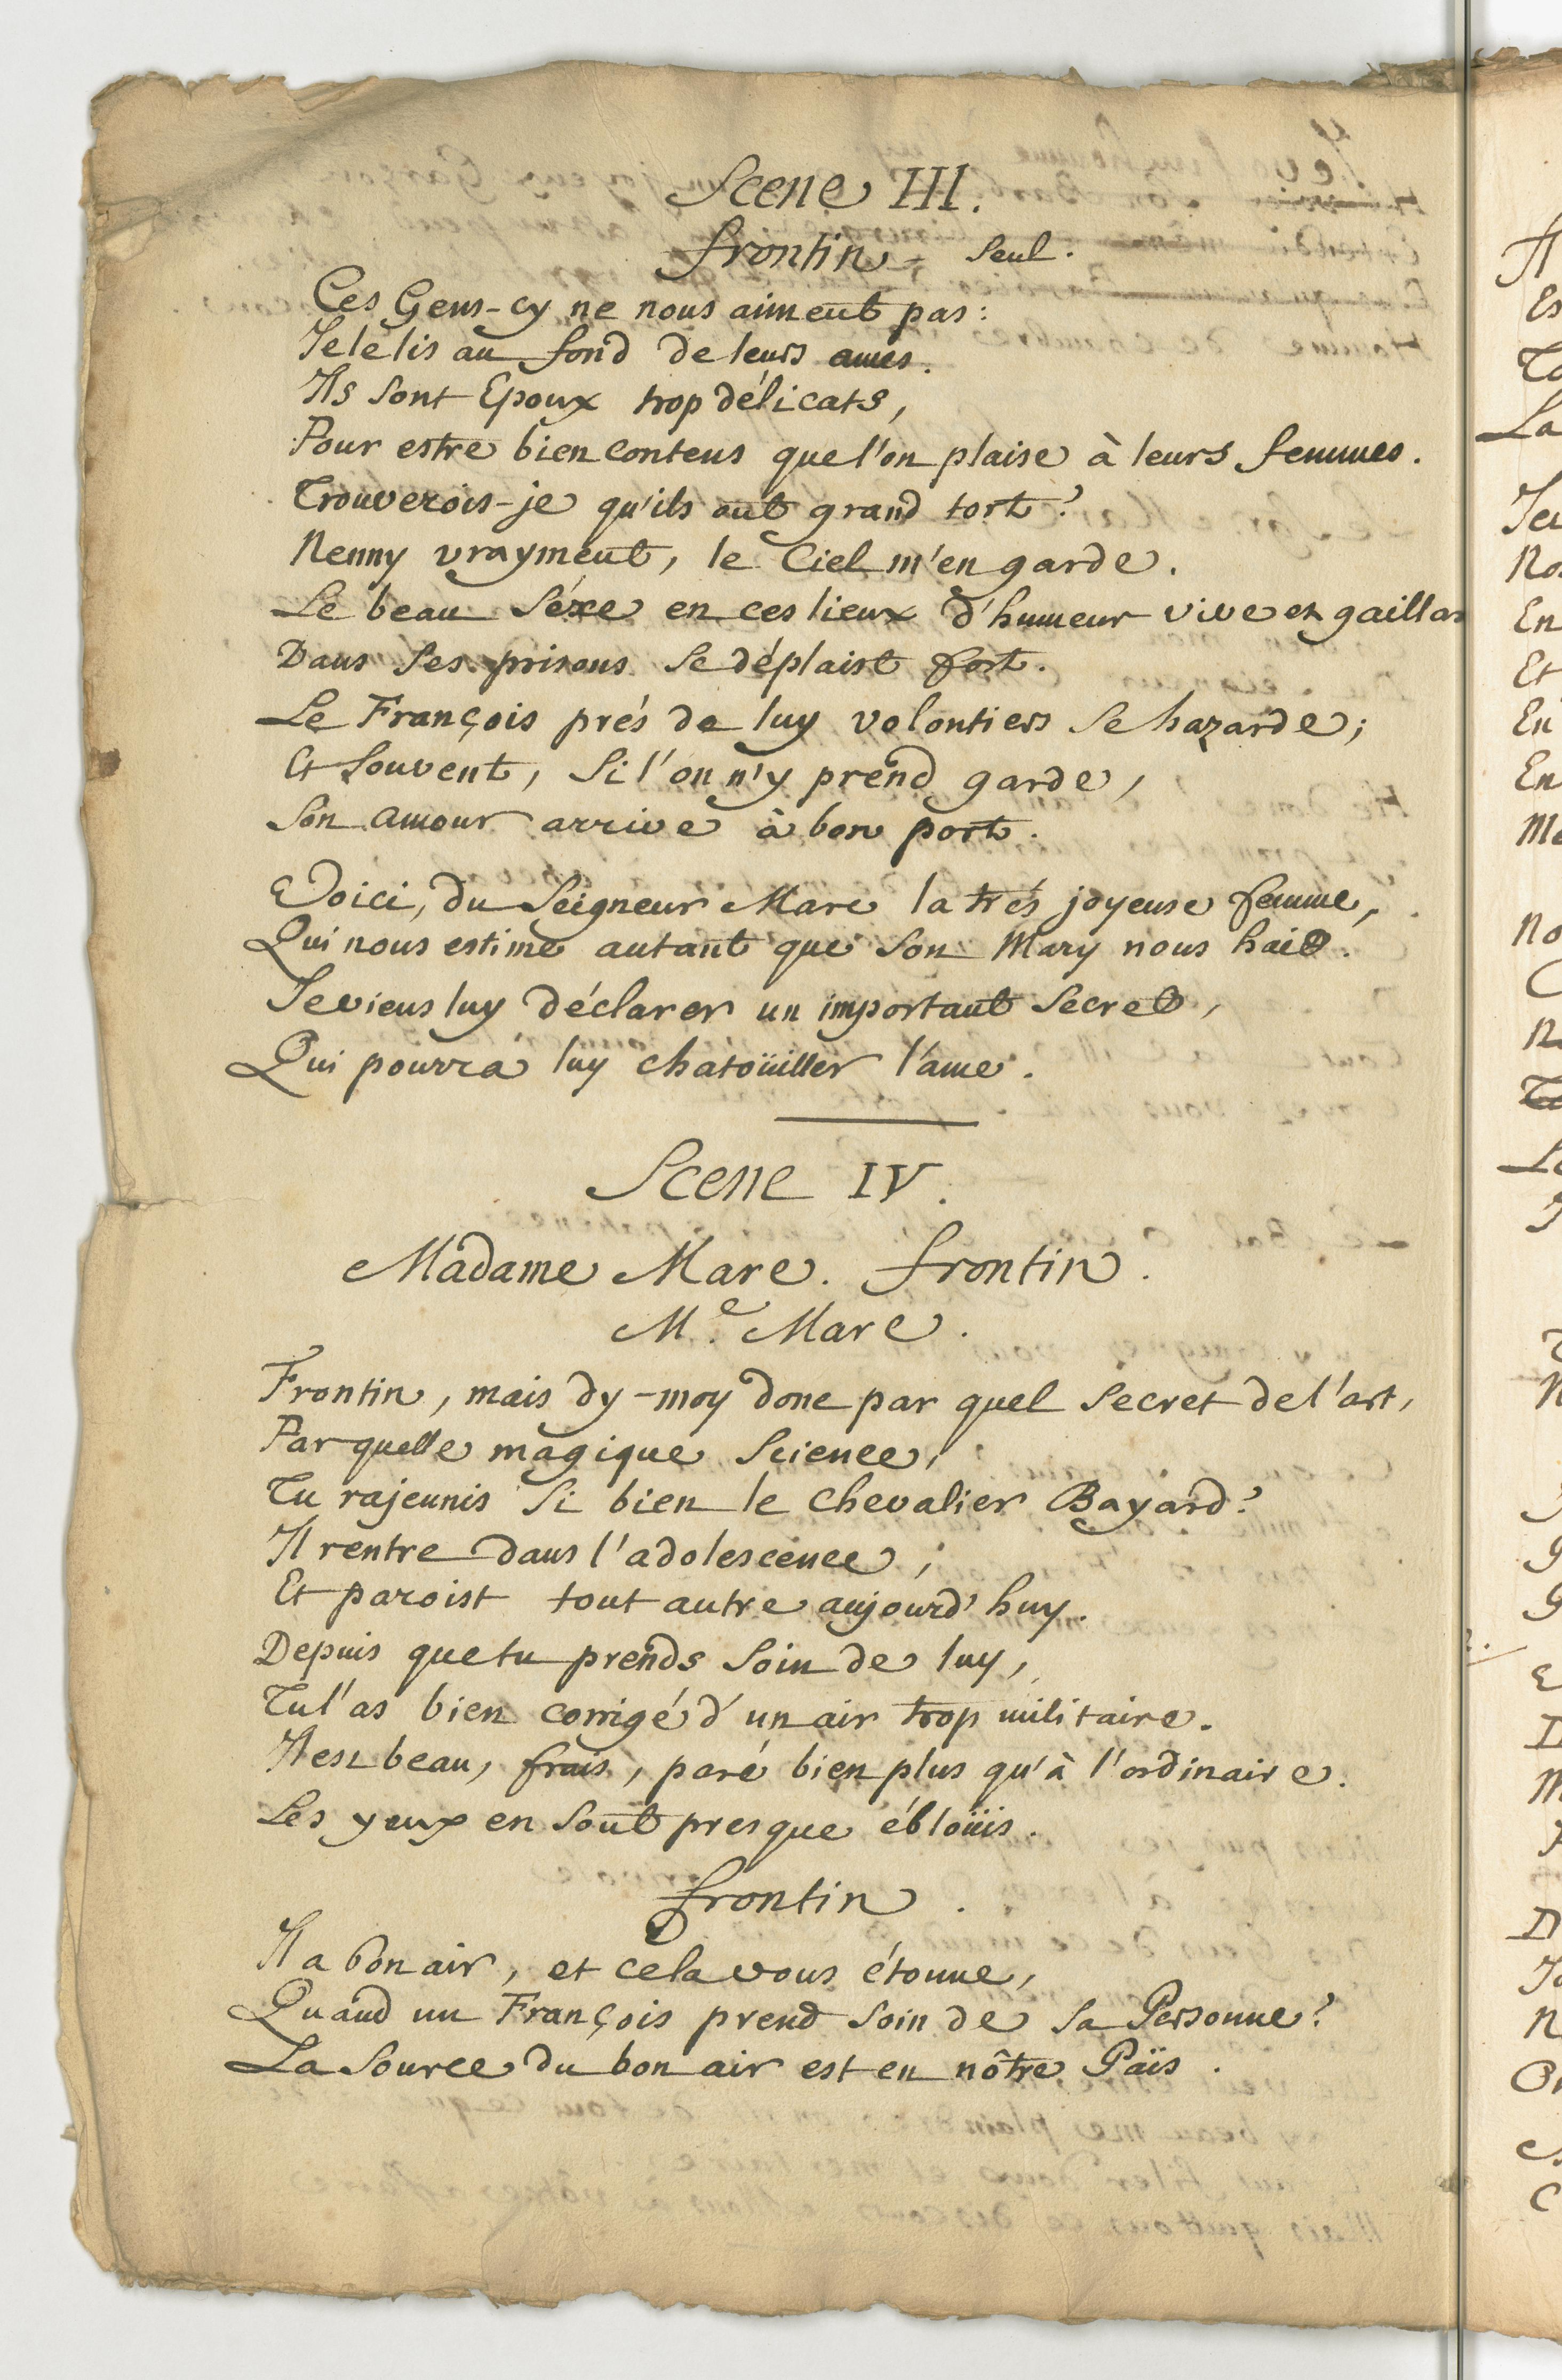 Scene III.
frontin, Seul.
Ces Gens-cy ne nous aiment pas:
Je le lis au fond de leurs ames.
Ils sont Epoux trop délicats,
Pour estre bien contens que l'on plaise à leurs femmes.
Trouverois-je qu'ils ont grand tort?
Nenny vrayment, le Ciel m'en garde.
Le beau Séxe en ces lieux d'humeur vive et gaillar
Dans ses prisons se déplaist fort.
Le François prés de luy volontiers se hazarde;
Et souvent, si l'on n'y prend garde,
Son amour arrive à bon port.
Voici, du Seigneur Marc la trés joyeuse femme,
Qui nous estime autant que son Mary nous hait.
Je viens luy déclarer un important secret,
Qui pourra luy chatoüiller l'ame.
Scene IV.
Madame Marc. frontin.
Me. Marc.
Frontin, mais dy-moy donc par quel secret de l'art,
Par quelle magique Science,
Tu rajeunis si bien le Chevalier Bayard?
Il rentre dans l'adolescence;
Et paroist tout autre aujourd'huy.
Depuis que tu prends soin de luy,
Tu l'as bien corrigé d'un air trop militaire.
Il est beau, frais, paré bien plus qu'à l'ordinaire.
Les yeux en sont presque ébloüis.
frontin.
Il a bon air, et cela vous étonne,
Quand un François prend soin de sa Personne?
La source du bon air est en nôtre Païs.